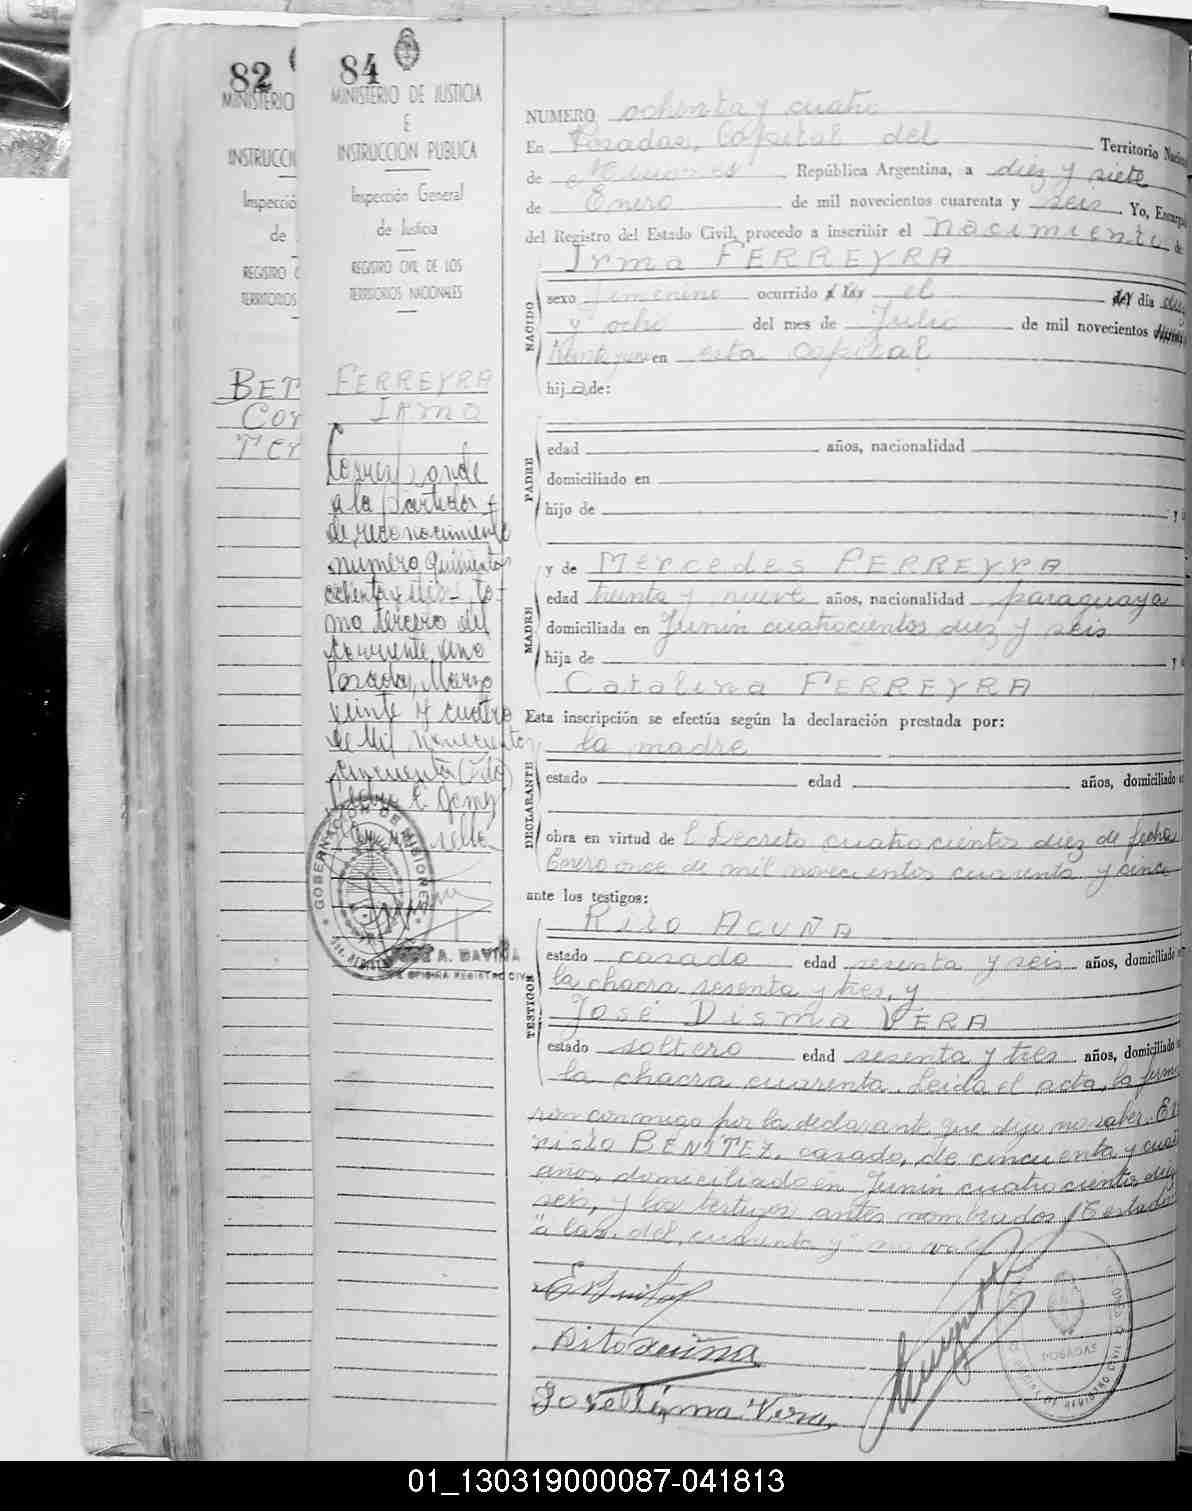 82
84
MINISTERIO
MINISTERIO DE JUSTICIA
E
INSTRUCCI
INSTRUCCION PUBLICA
Inspecció
Inspección General
de
de Justicia
REGISTRO C
REGISTRO CIVIL DE LOS
TERRITORIOS
TERRITORIOS NACIONALES
BET
FERREYRA
Irma
Corresponde
a la partida
de reconocimiento
numero quinientos
ochenta y to-
mo tercero del
corriente año
Posadas, Marzo
veinte y cuatro
de Mil novecientos
cincuenta
GOBERNACION DE MISIONES
A. DAVIÑA
OFICINA REGISTRO CIVIL
NUMERO ochenta y cuatro
En Posadas, Capital del Territorio Nacio
de Misiones, República Argentina, a diez y siete
de Enero de mil novecientos cuarenta y seis. Yo, Encarga
del Registro del Estado Civil, procedo a inscribir el Nacimiento de
Irma FERREYRA
NACIDO
sexo femenino ocurrido el día diez
y ocho del mes de Julio de mil novecientos
treinta y en esta capital
hija de:
PADRE
edad años, nacionalidad
domiciliado en
hijo de y
y de Mercedes FERREYRA
MADRE
edad treinta y nueve años, nacionalidad paraguaya
domiciliada en Junin cuatrocientos diez y seis
hija de y
Catalina FERREYRA
Esta inscripción se efectúa según la declaración prestada por:
la madre
DECLARANTE
estado edad años, domiciliado
obra en virtud del Decreto cuatrocientos diez de fecha
Enero once de mil novecientos cuarenta y cinco
ante los testigos:
Rito ACUÑA
TESTIGOS
estado casado edad sesenta y seis años, domiciliado
la chacra sesenta y tres, y
José Disma VERA
estado soltero edad sesenta y tres años, domiciliado
la chacra cuarenta. Leida el acta, la firma
ron conmigo por la declarante que dijo no saber, E
risto BENITEZ, casado, de cincuenta y cuatro
años, domiciliado en Junin cuatrocientos diez
seis, y los testigos antes nombrados. Testado:
"a las, del, cuarenta y" no vale
Rito Acuña
José Disma Vera
POSADAS
01_130319000087-041813